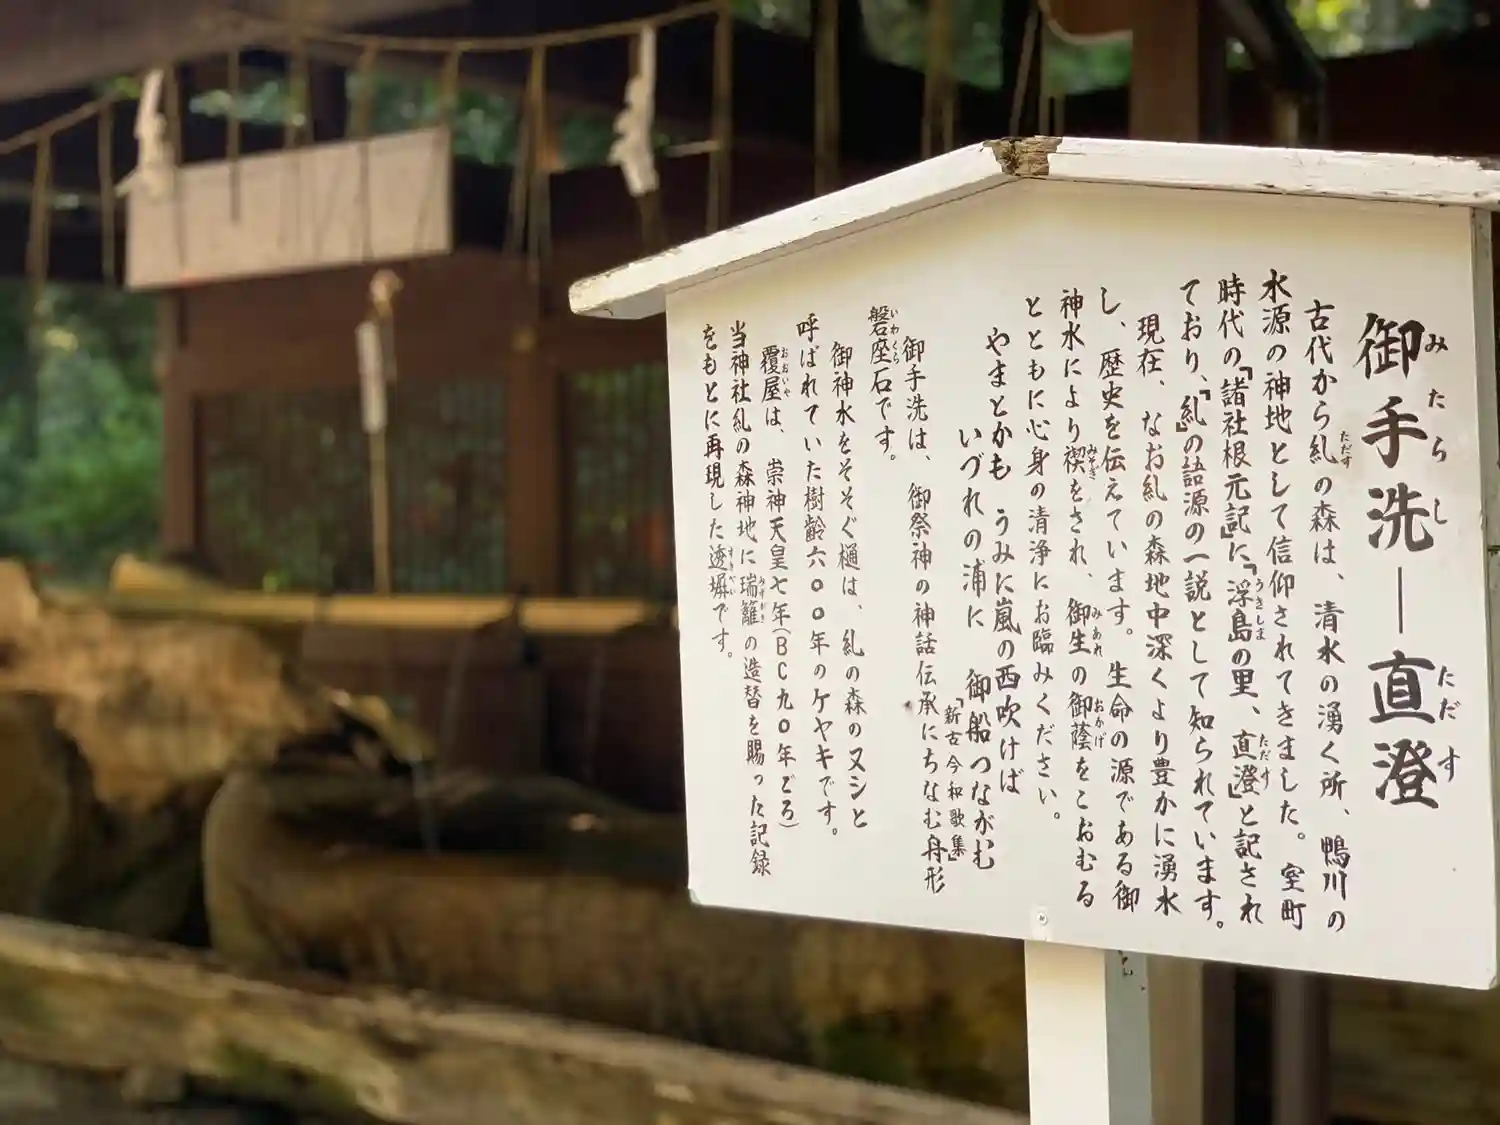 御手洗―直澄
みたらし ただす
古代から糺の森は、清水の湧く所、鴨川の
ただす
水源の神地として信仰されてきました。室町
時代の『諸社根元記』に『浮島の里、直澄』と記され
うきしま ただす
ており、『糺』の語源の一説として知られています。
現在、なお糺の森地中深くより豊かに湧水
し、歴史を伝えています。生命の源である御
神水により禊をされ、御生の御蔭をこおむる
みそぎ みあれ おかげ
とともに心身の清浄にお臨みください。
やまとかも うみに嵐の西吹けば
いづれの浦に 御船つながむ
『新古今和歌集』
御手洗は、御祭神の神話伝承にちなむ舟形
磐座石です。
いわくら
御神水をそそぐ樋は、糺の森のヌシと
呼ばれていた樹齢六〇〇年のケヤキです。
覆屋は、崇神天皇七年(BC九〇年ごろ)
おおいや
当神社糺の森神地に瑞籬の造替を賜った記録
みずがき
をもとに再現した透塀です。
すきべい